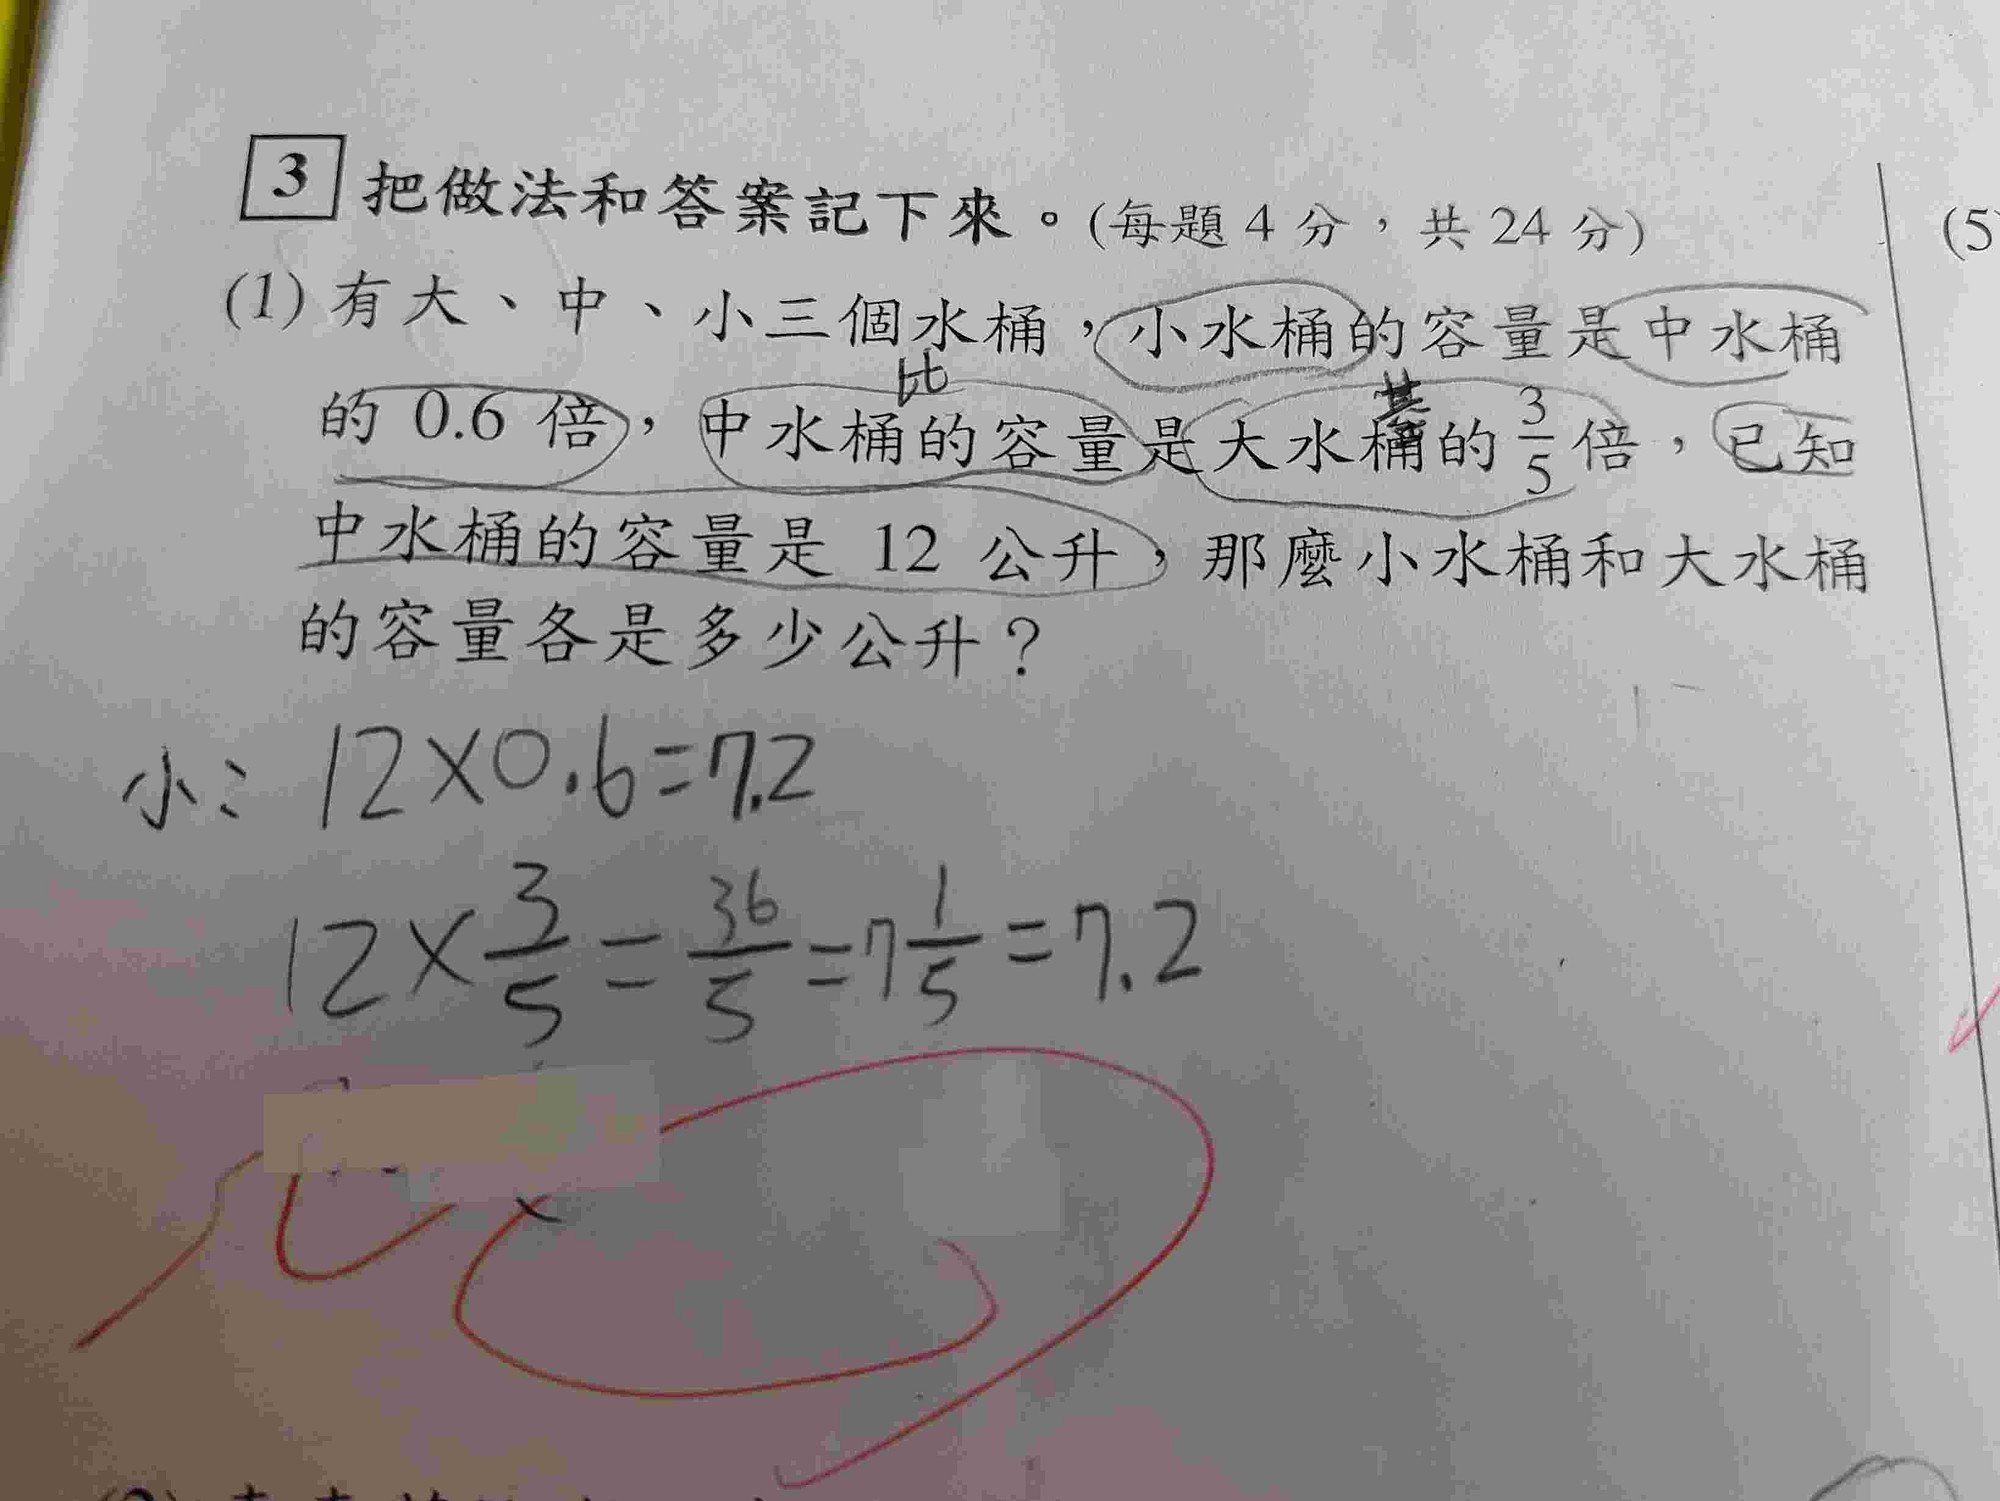 3 把做法和答案記下來。(每題 4 分，共 24 分)
(5
(1) 有大、中、小三個水桶，小水桶的容量是中水桶
比 基
的 0.6 倍，中水桶的容量是大水桶的 3/5 倍，已知
中水桶的容量是 12 公升，那麼小水桶和大水桶
的容量各是多少公升？
小：12×0.6=7.2
12×3/5=36/5=7 1/5=7.2